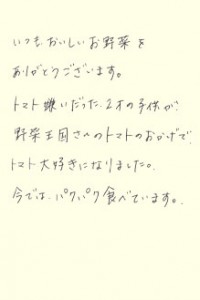 いつもおいしいお野菜を
ありがとうございます。
トマト嫌いだった2才の子供が、
野菜王国さんのトマトのおかげで、
トマト大好きになりました。
今では、パクパク食べています。